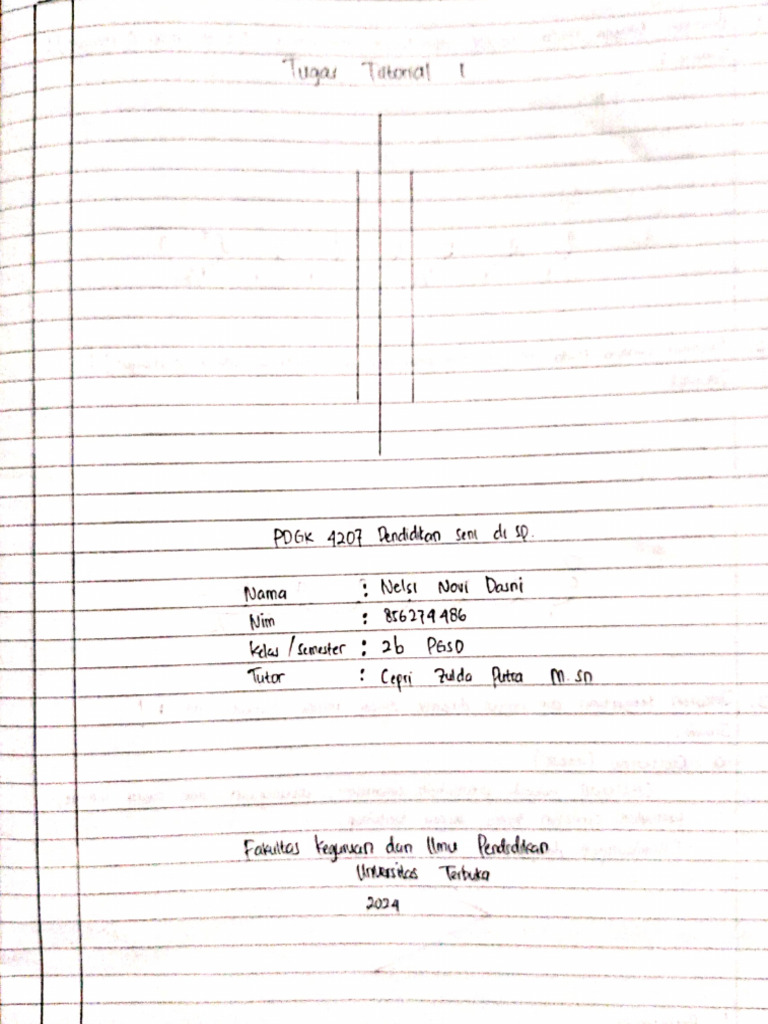 Tugas Tutorial 1
PDGK 4207 Pendidikan seni di SD.
Nama : Nelsi Novi Dasni
Nim : 856274486
Kelas / semester : 2b PGSD
Tutor : Cepri Zulda Putra M.Sn
Fakultas Keguruan dan Ilmu Pendidikan
Universitas Terbuka
2024